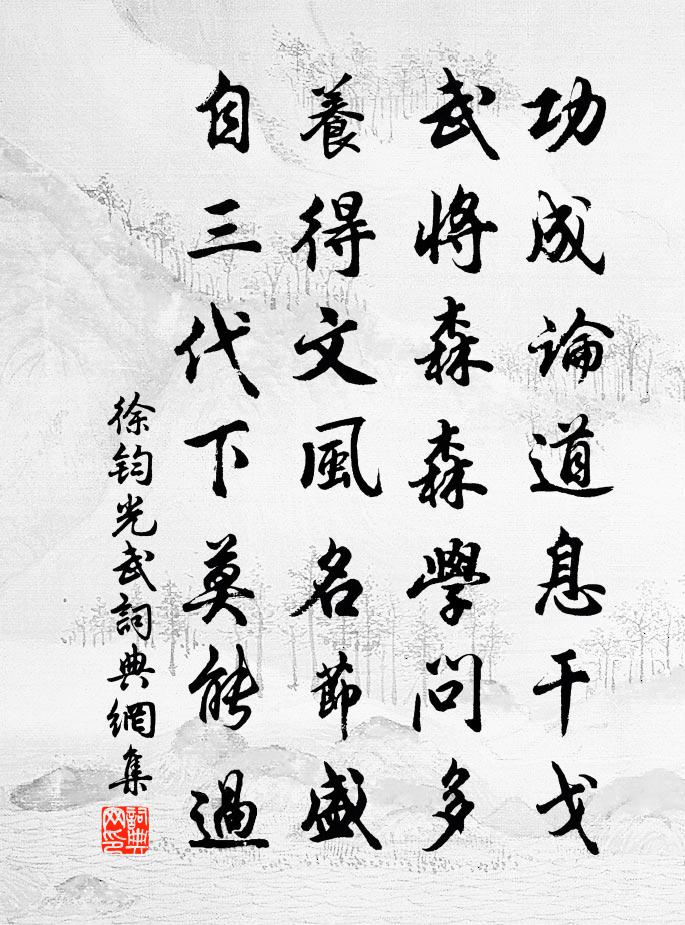 功成論道息干戈
武將森森學問多
養得文風名節盛
自三代下莫能過
徐鈞光武詞典網集
詞典網印